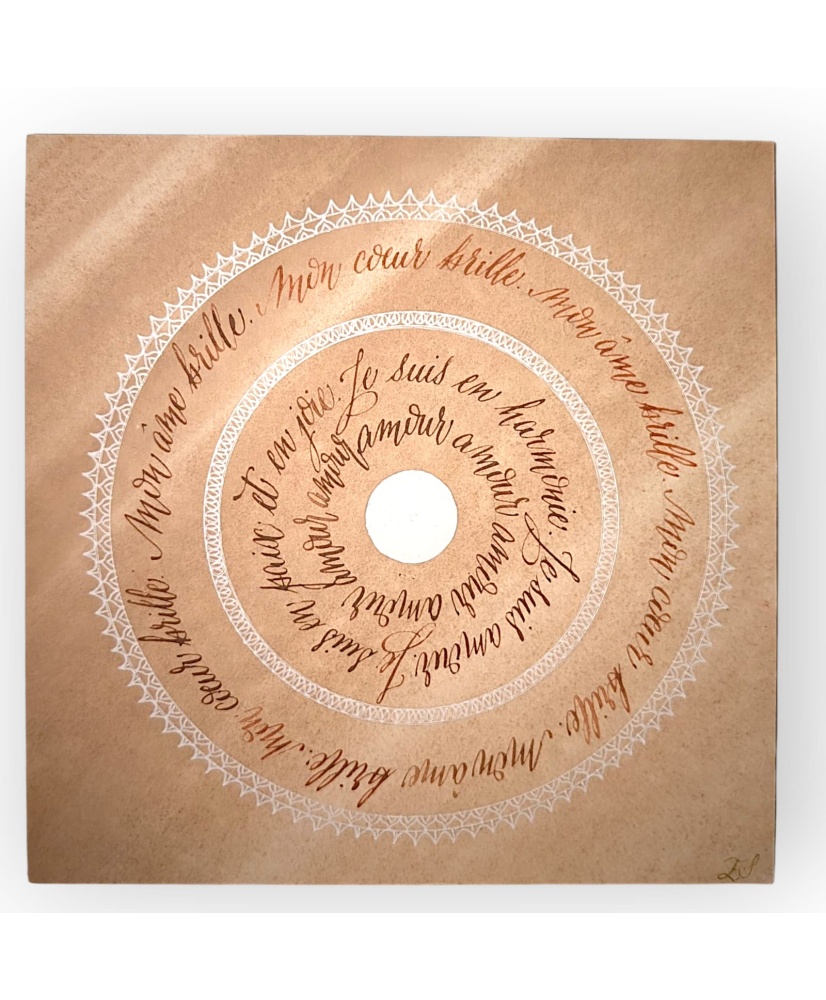 Mon cœur brille. Mon âme brille. Mon cœur brille. Mon âme brille. Mon cœur brille. Mon âme brille.
Je suis en harmonie. Je suis amour. Je suis en paix et en joie.
amour amour amour amour amour amour amour amour